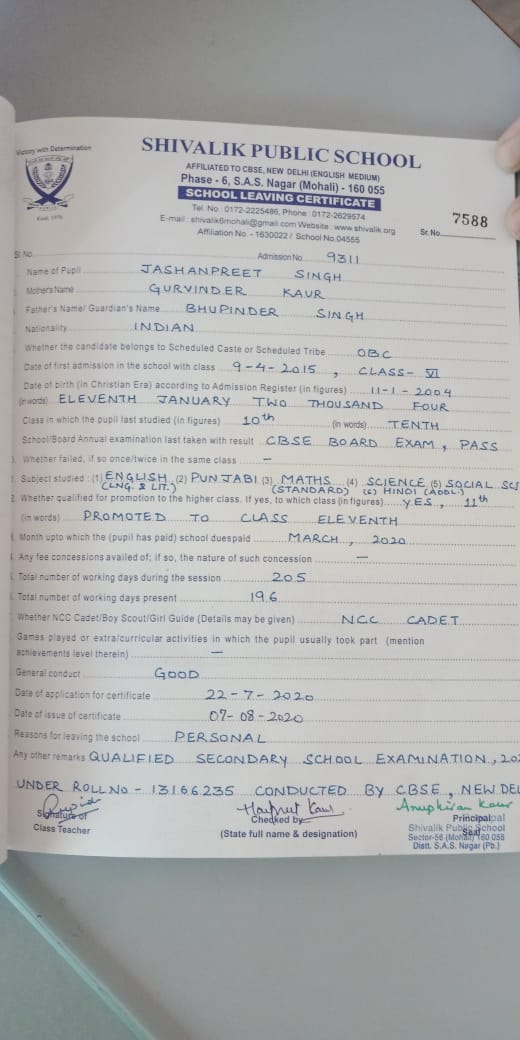 Victory with Determination
SHIVALIK PUBLIC SCHOOL
AFFILIATED TO CBSE, NEW DELHI (ENGLISH MEDIUM)
Phase - 6, S.A.S. Nagar (Mohali) - 160 055
SCHOOL LEAVING CERTIFICATE
Estd. 1976
Tel. No : 0172-2225486, Phone : 0172-2629574
E-mail : shivalik6mohali@gmail.com Website : www.shivalik.org
Affiliation No. - 1630022 / School No.04555
Sr. No. 7588
Sr. No. Admission No. 9311
Name of Pupil JASHANPREET SINGH
Mother's Name GURVINDER KAUR
Father's Name/ Guardian's Name BHUPINDER SINGH
Nationality INDIAN
Whether the candidate belongs to Scheduled Caste or Scheduled Tribe OBC
Date of first admission in the school with class 9-4-2015, CLASS-VI
Date of birth (in Christian Era) according to Admission Register (in figures) 11-1-2004
(in words) ELEVENTH JANUARY TWO THOUSAND FOUR
Class in which the pupil last studied (in figures) 10th (in words) TENTH
School/Board Annual examination last taken with result CBSE BOARD EXAM, PASS
Whether failed, if so once/twice in the same class -
Subject studied : (1) ENGLISH (LNG. & LIT.) (2) PUNJABI (3) MATHS (STANDARD) (4) SCIENCE (5) SOCIAL SCI (6) HINDI (ADDL.)
Whether qualified for promotion to the higher class. If yes, to which class (in figures) YES, 11th
(in words) PROMOTED TO CLASS ELEVENTH
Month upto which the (pupil has paid) school duespaid MARCH, 2020
Any fee concessions availed of; if so, the nature of such concession -
Total number of working days during the session 205
Total number of working days present 196
Whether NCC Cadet/Boy Scout/Girl Guide (Details may be given) NCC CADET
Games played or extra/curricular activities in which the pupil usually took part (mention
achievements level therein) -
General conduct GOOD
Date of application for certificate 22-7-2020
Date of issue of certificate 07-08-2020
Reasons for leaving the school PERSONAL
Any other remarks QUALIFIED SECONDARY SCHOOL EXAMINATION, 202
UNDER ROLL NO - 13166235 CONDUCTED BY CBSE, NEW DEL
Harpreet Kaur
Anupkiran Kaur
Signature of
Class Teacher
Checked by
(State full name & designation)
Principal
Seal
Principal
Shivalik Public School
Sector-56 (Mohali) 160 055
Distt. S.A.S. Nagar (Pb.)